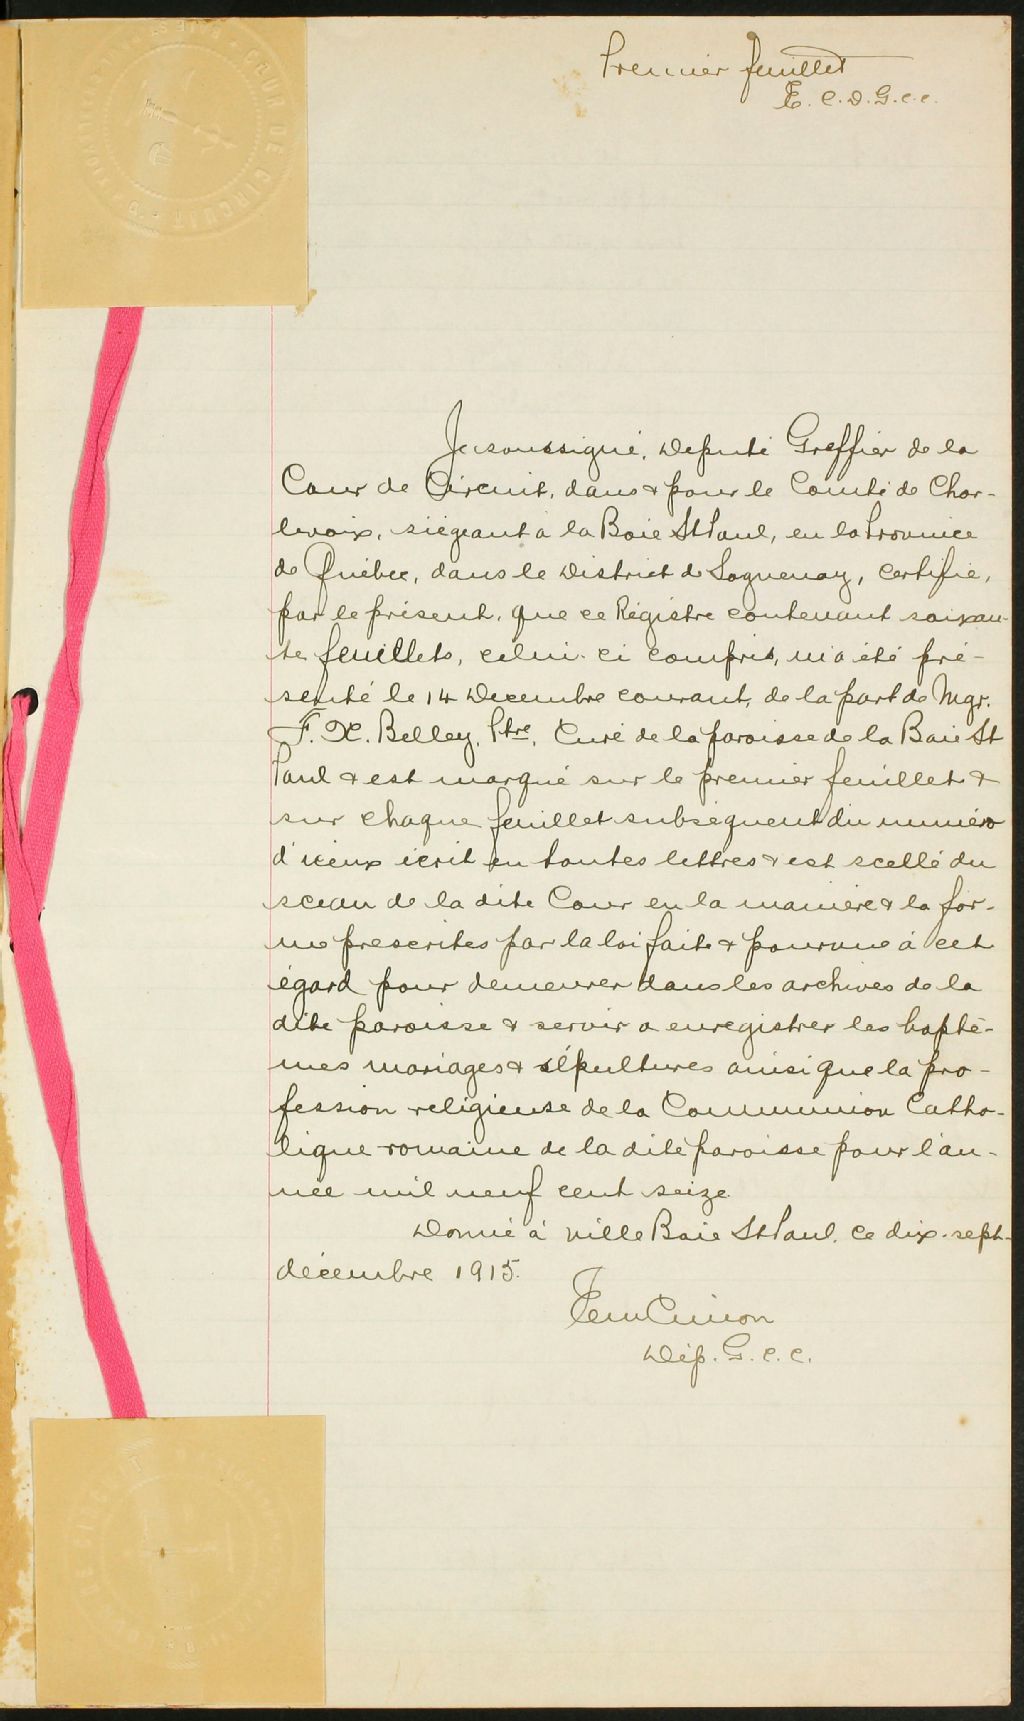 Premier feuillet
E. C. D. G. c. c.
Je soussigné, Député Greffier de la
Cour de Circuit, dans & pour le Comté de Char-
levoix, siégeant à la Baie St Paul, en la Province
de Québec, dans le District de Saguenay, certifie,
par le présent, que ce Régistre contenant soixan-
te feuillets, celui-ci compris, m'a été pré-
senté le 14 Decembre courant, de la part de Mgr.
F. X. Belley, Ptre, Curé de la paroisse de la Baie St
Paul & est marqué sur le premier feuillet &
sur chaque feuillet subséquent du numéro
d'iceux écrit en toutes lettres & est scellé du
sceau de la dite Cour en la manière & la for-
me prescrites par la loi faite & pourvue à cet
égard pour demeurer dans les archives de la
dite paroisse & servir a enregistrer les baptê-
mes mariages & sépultures ainsi que la pro-
fession religieuse de la Communion Catho-
lique romaine de la dite paroisse pour l'an-
née mil neuf cent seize
Donné à ville Baie St Paul, ce dix-sept
décembre 1915.
Cimon
Dép. G. c. c.
COUR DE CIRCUIT